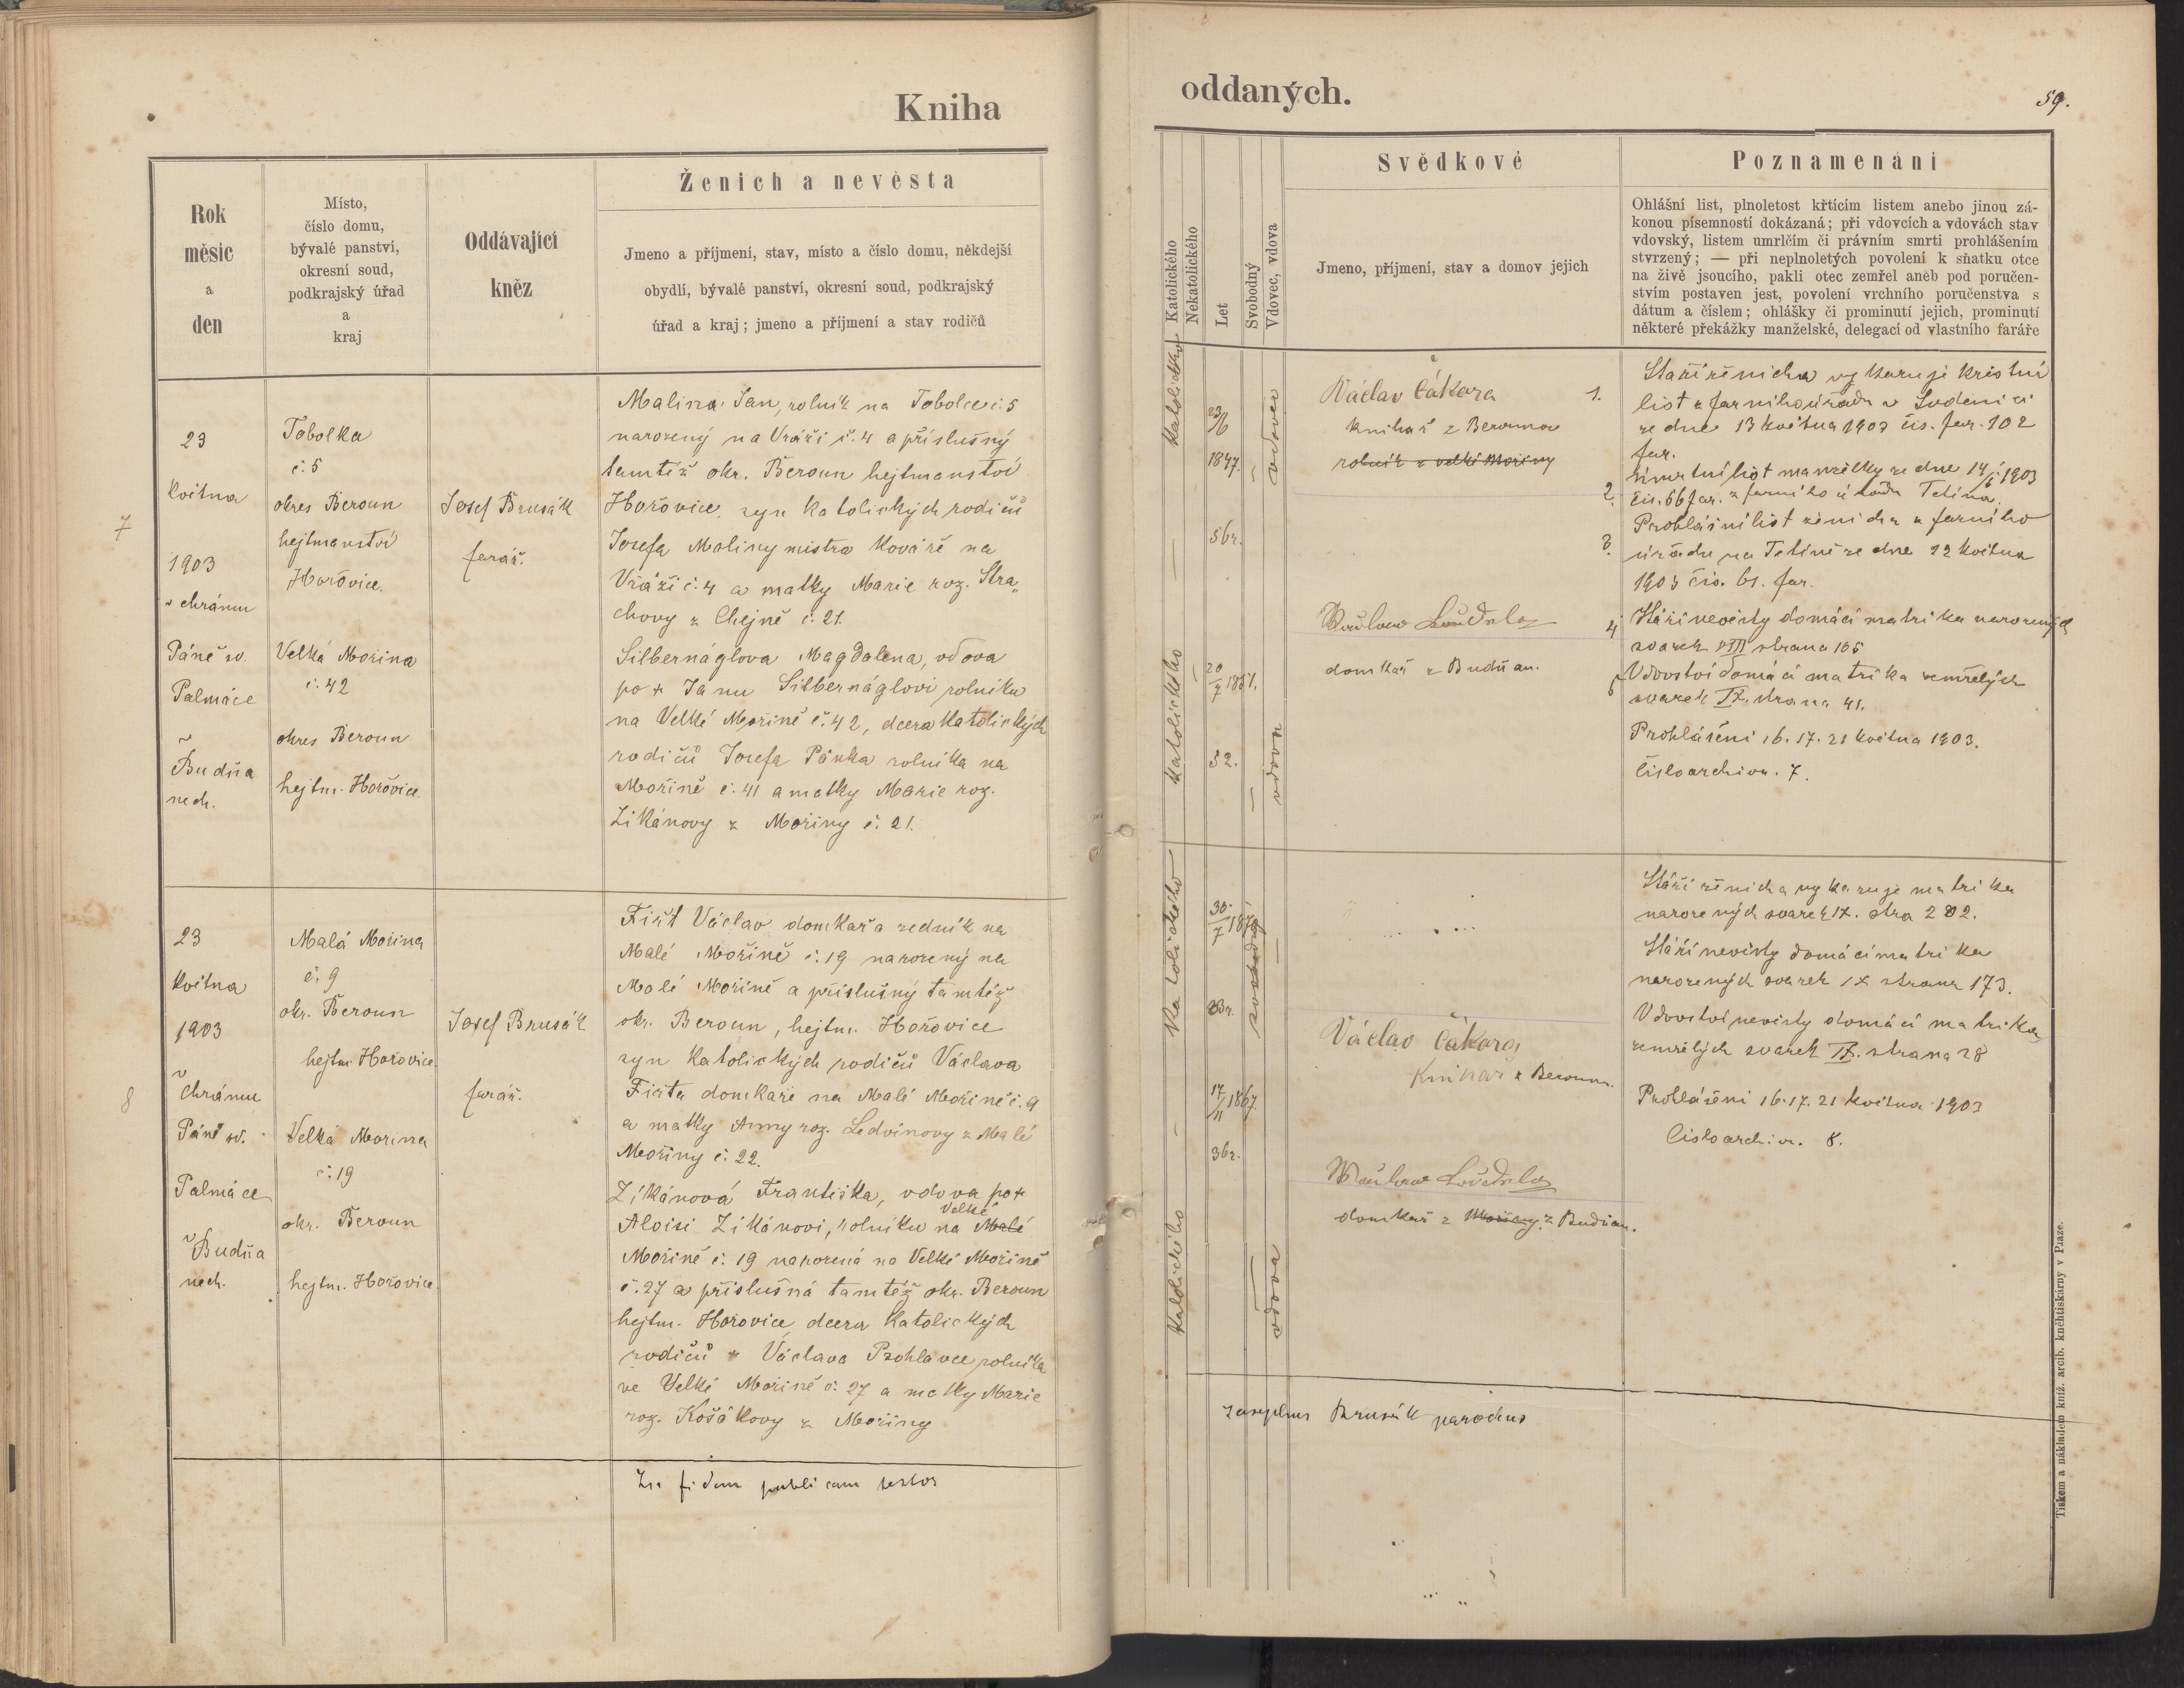 Kniha
oddaných.
59.
Rok
měsíc
a
den
Místo,
číslo domu,
bývalé panství,
okresní soud,
podkrajský úřad
a
kraj
Oddávající
kněz
Ženich a nevěsta
Jmeno a příjmení, stav, místo a číslo domu, někdejší
obydlí, bývalé panství, okresní soud, podkrajský
úřad a kraj; jmeno a příjmení a stav rodičů
Katolického
Nekatolického
Let
Svobodný
Vdovec, vdova
Svědkové
Jmeno, příjmení, stav a domov jejich
Poznamenání
Ohlášní list, plnoletost křtícím listem anebo jinou zá-
konou písemností dokázaná; při vdovcích a vdovách stav
vdovský, listem umrlčím či právním smrti prohlášením
stvrzený; — při neplnoletých povolení k sňatku otce
na živě jsoucího, pakli otec zemřel aneb pod poručen-
stvím postaven jest, povolení vrchního poručenstva s
dátum a číslem; ohlášky či prominutí jejich, prominutí
některé překážky manželské, delegací od vlastního faráře
7
23
května
1903
v chrámu
Páně sv.
Palmáce
v
Budňa
nech.
Tobolka
č. 5
okres Beroun
hejtmanství
Hořovice.
Velká Mořina
č. 42
okres Beroun
hejtm. Hořovice
Josef Brusák
farář.
Malina Jan, rolník na Tobolce č. 5
narozený na Vráži č. 4 a příslušný
tamtéž okr. Beroun hejtmanství
Hořovice, syn katolických rodičů
Josefa Maliny mistra kováře na
Vráži č. 4 a matky Marie roz. Stra„
chovy z Chejně č. 21.
Silbernáglova Magdalena, vdova
po + Janu Silbernáglovi rolníku
na Velké Mořině č. 42, dcera katolických
rodičů Josefa Pánka rolníka na
Mořině č. 41 a matky Marie roz.
Zikánovy z Mořiny č. 21.
katolického
23/6
1847.
56r.
vdovec
katolického
20/7 1851.
52.
vdova
Václav Čákora
knihař z Berouna
rolník z velké Mořiny
domkař z Budňan.
1. Stáří ženicha vykazuje křestní
list z farního úřadu v Lodenici
ze dne 13 května 1903 čís. far. 102
far.
2. úmrtní list manželky ze dne 14/5 1903
čis. 66 far. z farního úřadu Tetína.
3. Prohlášní list ženicha z farního
úřadu na Tetíně ze dne 22 května
1903 čís. 61. far.
4 Stáří nevěsty domácí matrika narozených
svazek VIII strana 105
5 Vdovství domácí matrika zemřelých
svazek IX. strana 41.
Prohlášení 16. 17. 21 května 1903.
Číslo archivu. 7.
8
23
května
1903
v
chrámu
Páně sv.
Palmáce
v Budňa
nech.
Malá Mořina
č. 9
okr. Beroun
hejtm. Hořovice.
Velká Mořina
č. 19
okr. Beroun
hejtm. Hořovice
Josef Brusák
farář.
Fišt Václav domkař a zedník na
Malé Mořině č. 19 narozený na
Malé Mořině a příslušný tamtéž
okr. Beroun, hejtm. Hořovice
syn katolických rodičů Václava
Fišta domkaře na Malé Mořině č. 9
a matky Anny roz. Ledvinovy z Malé
Mořiny č. 22.
Zikánová Františka, vdova po +
Velké
Aloisi Zikánovi, rolníku na Malé
Mořině č. 19 narozená na Velké Mořině
č. 27 a příslušná tamtéž okr. Beroun
hejtm. Hořovice dcera katolických
rodičů Václava Prohlavce rolníka
ve Velké Mořině č. 27 a matky Marie
roz. Košákovy z Mořiny
katolického
30/7 1879
svobodný
katolického
17/11 1867.
36r.
vdova
Václav Čákora
Knihař z Berouna.
domkař z Mořiny. z Budňan.
Stáří ženicha vykazuje matrika
narozených svazek IX. stra 282.
Stáří nevěsty domácí matrika
narozených svazek IX strana 173.
Vdovství nevěsty domácí matrika
zemřelých svazek IX. strana 28
Prohlášení 16. 17. 21 května 1903
Číslo archiv. 8.
fidem publicam testor
Josephus Brusák parochus
Tiskem a nákladem kníž. arcib. kněhtiskárny v Praze.